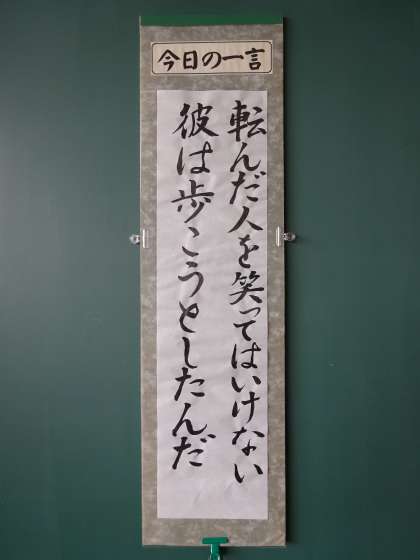 今日の一言
転んだ人を笑ってはいけない
彼は歩こうとしたんだ